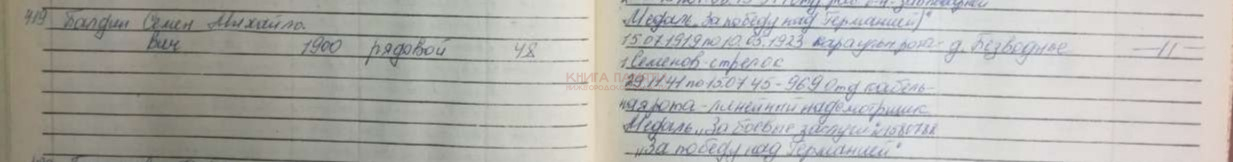 419 Балдин Семен Михайло-
вич 1900 рядовой 48
Медаль „За победу над Германией"
15.07.1919 по 10.05.1923 караульн рота- д. Безводное —11—
г. Семенов-стрелок
29.11.41 по 15.07.45 - 969 отд кабель-
ная рота - линейный надсмотрщик
Медаль „За боевые заслуги"
„За победу над Германией"
КНИГА ПАМЯТИ